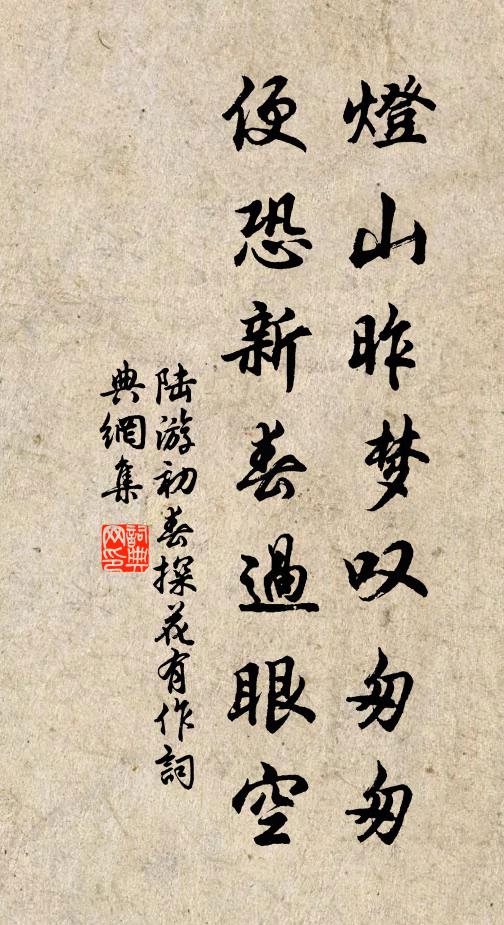 燈山昨梦叹匆匆
便恐新春過眼空
陆游初春探花有作詞
典網集
詞典网印